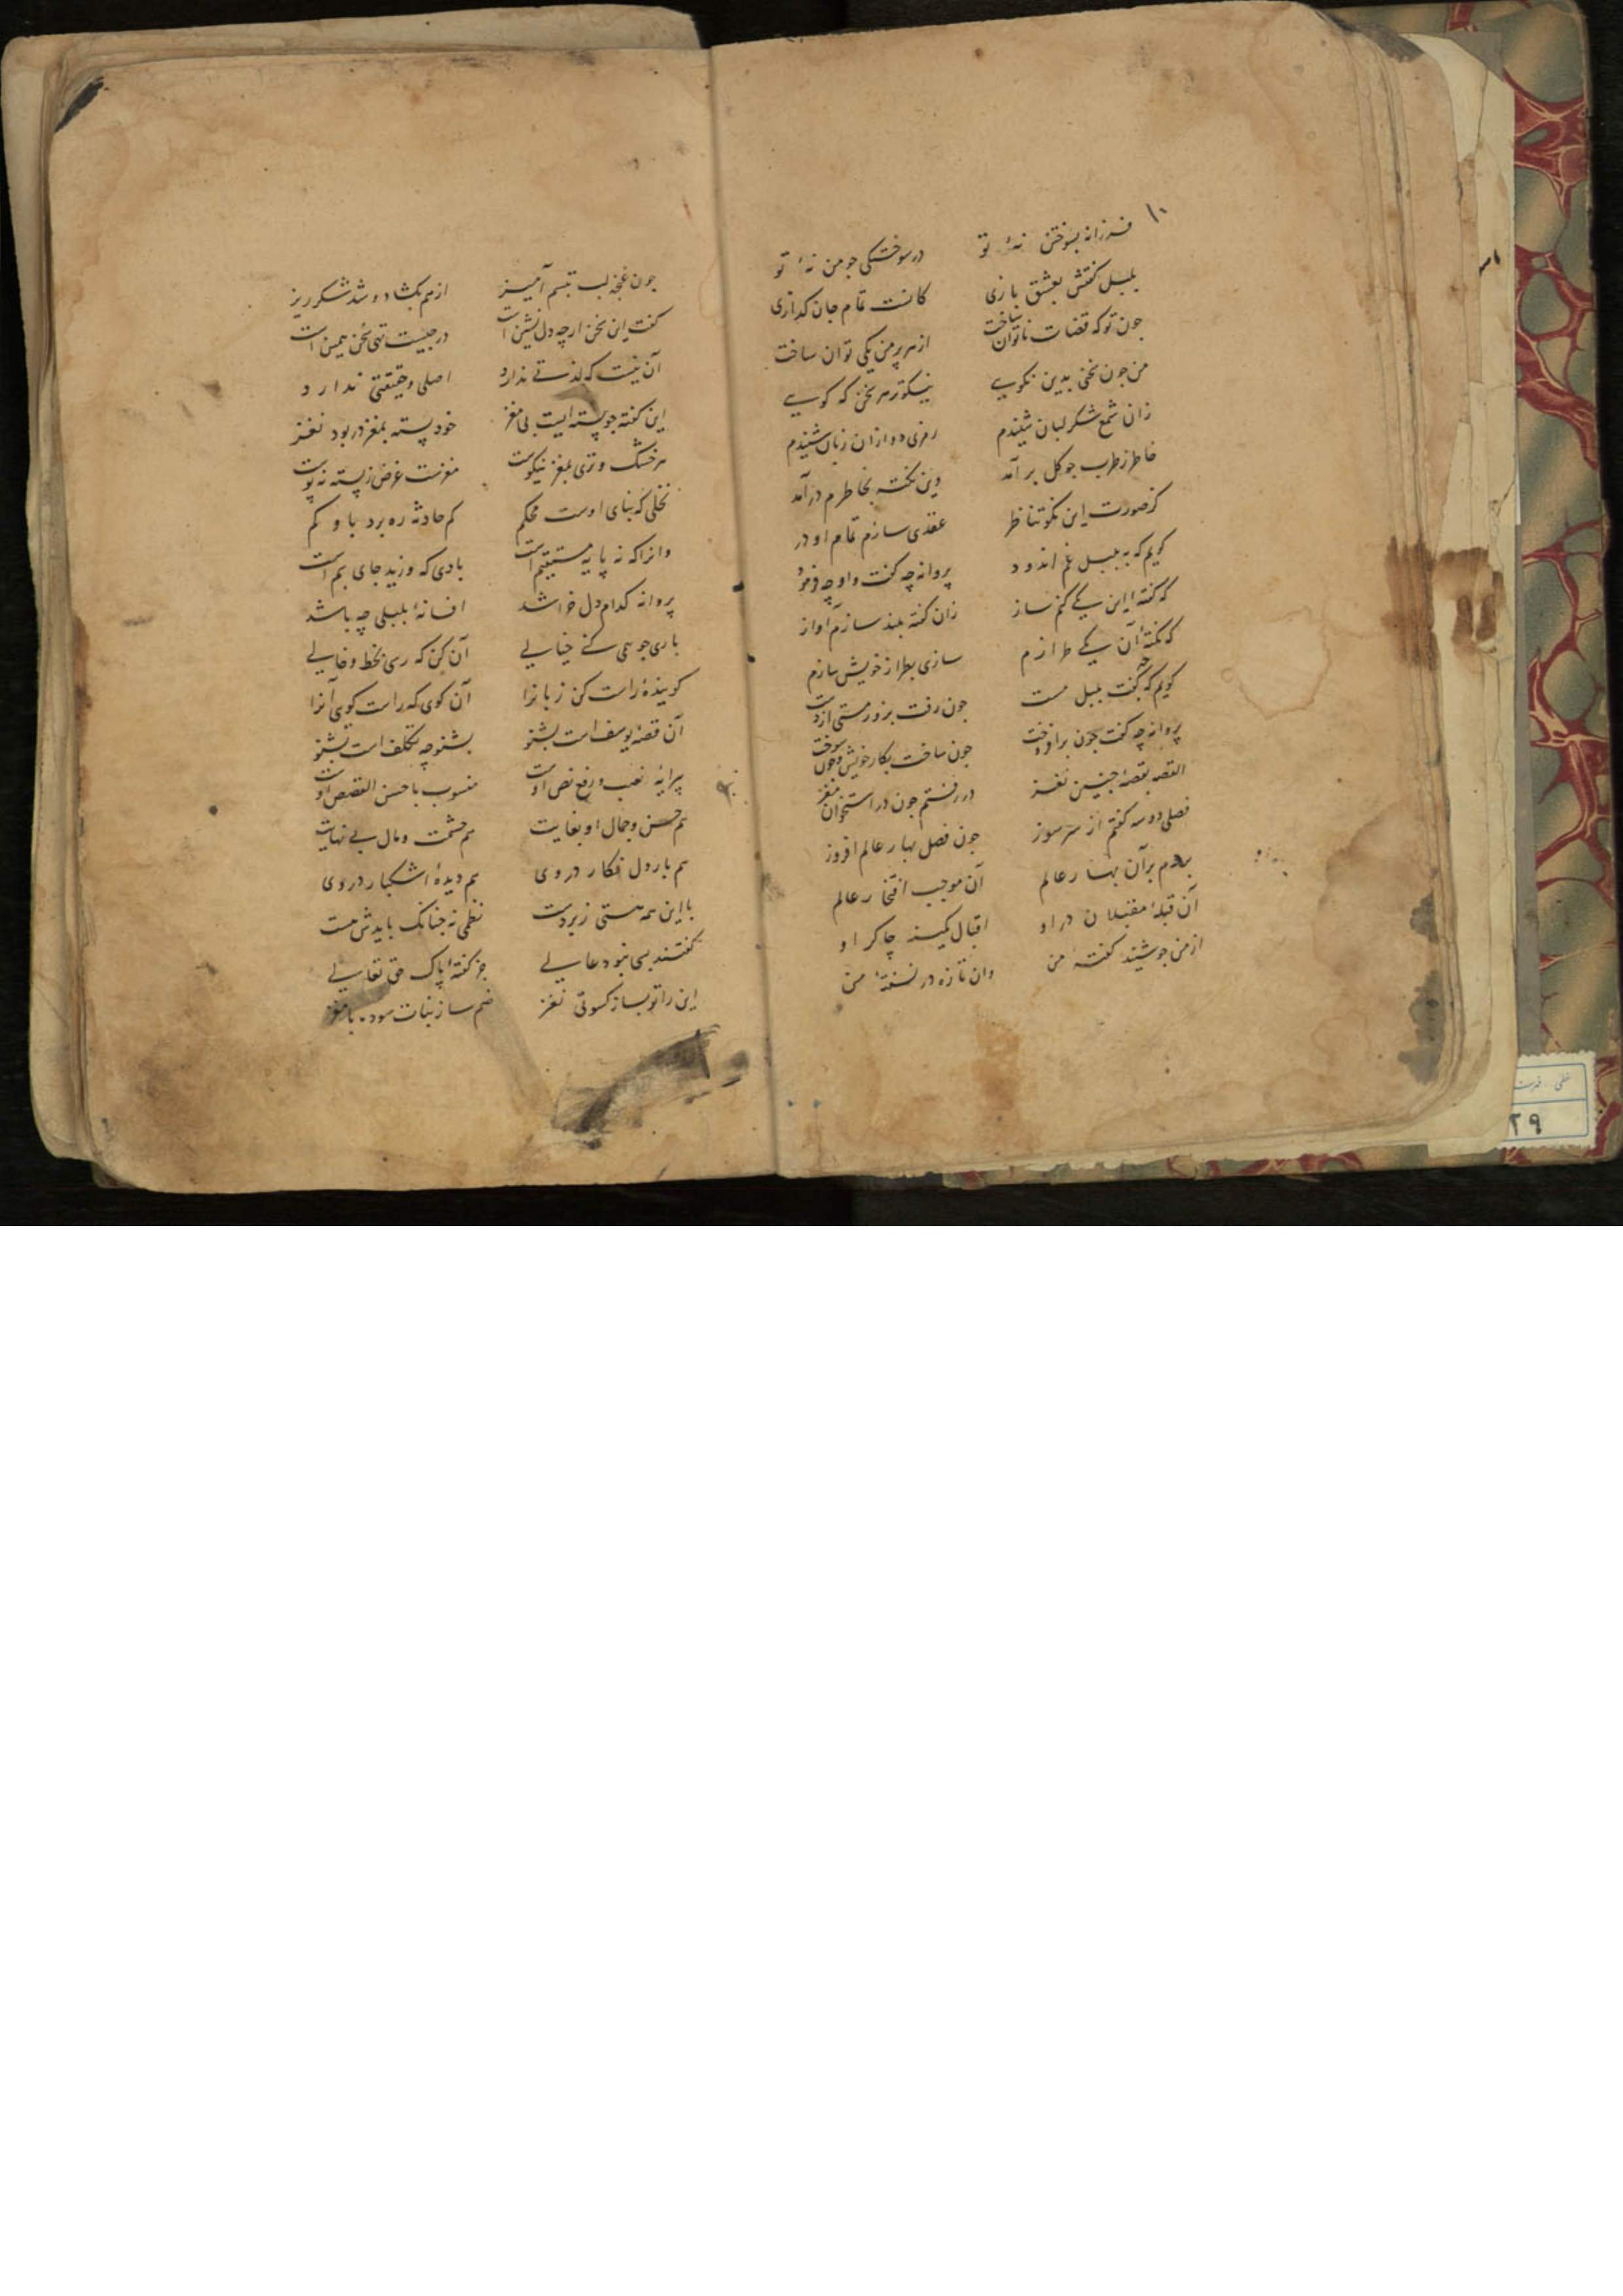 ۱۰
فرزانه بسوختن نهٔ تو در سوختگی جو من نهٔ تو
بلبل گفتش بعشق بازی کانست تمام جان کدازی
جون تو که قضات ناتوان ساخت از هر پر من یکی توان ساخت
من جون سخنی بدین نکویی نیکوتر هر سخن که کویی
زان شمع شکر لبان شنیدم رمزی دو ازان زبان شنیدم
خاطر ز طرب جو کل بر آمد وین نکته بخاطرم در آمد
کز صورت این نکو تناظر عقدی سازم تمام او در
کویم که به بلبل غم اندود پروانه چه گفت و او چه فرمود
که کفتهٔ این یکی کنم ساز زان کفته بلند سازم آواز
که نکتهٔ آن یکی طرازم سازی بطراز خویش سازم
کویم که چه گفت بلبل مست جون رفت بزور مستی از دست
پروانه چه گفت جون بر افروخت جون ساخت بکار خویش و جون سوخت
القصه بقصهٔ جنین نغز در رفتم جون در استخوان مغز
فصلی دو سه گفتم از سر سوز جون فصل بهار عالم افروز
بردم بر آن بهار عالم آن موجب افتخار عالم
آن قبلهٔ مقبلان در او اقبال کمینه چاکر او
از من جو شنید کفتهٔ من وان تازه در نسفتهٔ من
جون غنچه لب تبسم آمیز از هم بکشاد و شد شکر ریز
کفت این سخن ارچه دل نشین است در جیست تهی سخن همین است
آن نیست که لذتی ندارد اصلی و حقیقتی ندارد
این کفته جو پسته ایست بی مغز خود پسته بمغز در بود نغز
هر خشک و تری بمغز نیکوست مغزست غرض ز پسته نه پوست
نخلی که بنای اوست محکم کم حادثه ره برد باو کم
وانرا که نه پایه مستقیم است بادی که وزید جای بیم است
پروانه کدام دل خراشد افسانهٔ بلبلی چه باشد
باری جو همی کنی خیالی آن کن که رسی بخط و خالی
کویندهٔ راست کن زبانرا آن کوی که راست کوی آنرا
آن قصهٔ یوسف است بشنو بشنو چه تکلف است بشنو
پیرایهٔ نصب و رفع نص اوست منسوب باحسن القصص اوست
هم حسن و جمال او بغایت هم حشمت و مال بی نهایت
هم بار دل فکار در وی هم دیدهٔ اشکبار در وی
با این همه هستی زبردست نظمی نه جنانک بایدش هست
کفتند بسی نبود عالی جز کفتهٔ پاک حق تعالی
این را تو بساز کسوتی نغز
۲۹